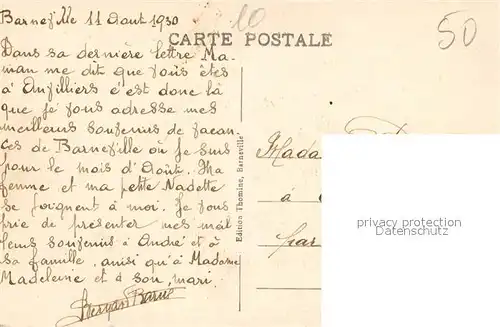 Barneville 11 Aout 1930
10
50
CARTE POSTALE
Dans sa dernière lettre Ma-
man me dit que vous êtes
à c'est donc là
que je vous adresse mes
meilleurs souvenirs de vacan-
ces de Barneville où je suis
pour le mois d'Août. Ma
femme et ma petite Nadette
se joignent à moi. Je vous
prie de présenter mes meil
leurs souvenirs à André et à
sa famille, ainsi qu'à Madame
Madeleine et à son mari.
Edition Thomine, Barneville
Mada
à
par
privacy protection
Datenschutz